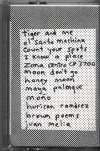 tiger and me
el santo machina
count your spots
I know a place
zona centro CP 7700
moon don't go
honey moon
maya palenque
mono
hurican ramirez
brown poems
juan melia